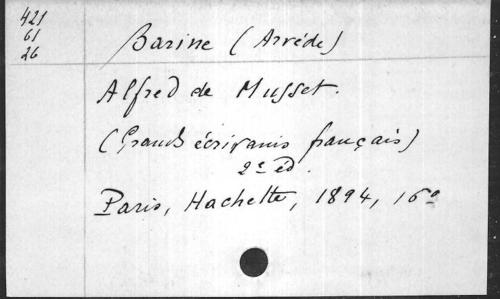 421
61
26
Barine (Arvède)
Alfred de Musset.
(Grands écrivains français)
2e éd.
Paris, Hachette, 1894, 16o